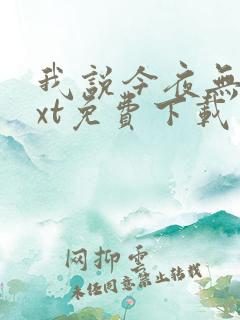 我説今夜無
xt免費下載
网抑雲
未经同意禁止转载